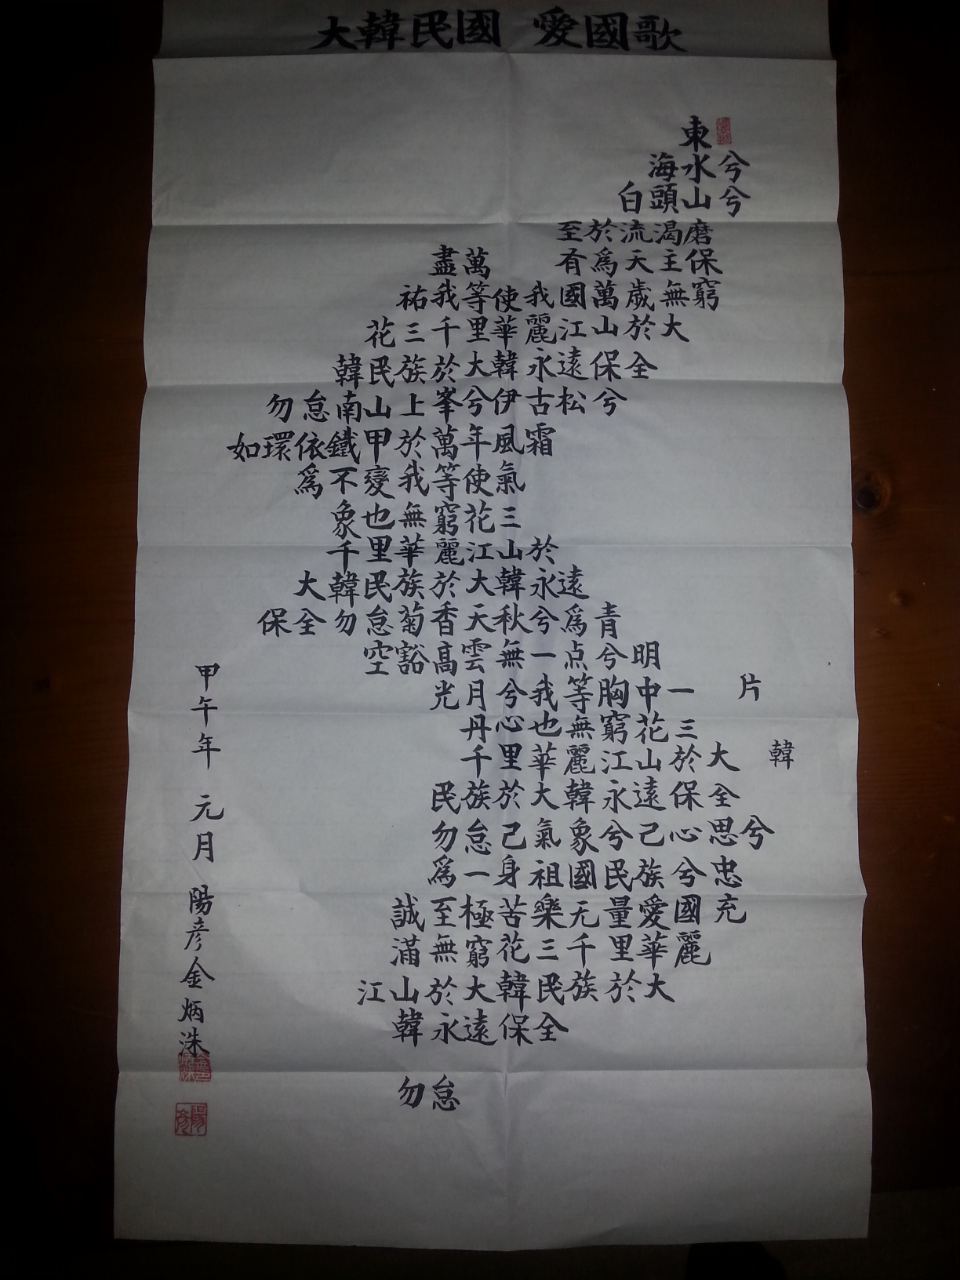 大韓民國 愛國歌
東
海水兮
白頭山兮
至於流渴磨
盡萬 有爲天主保
祐我等使我國萬歲無窮
花三千里華麗江山於大
韓民族於大韓永遠保全
勿怠南山上峯兮伊古松兮
如環依鐵甲於萬年風霜
爲不變我等使氣
象也無窮花三
千里華麗江山於
大韓民族於大韓永遠
保全勿怠菊香天秋兮爲青
空豁高雲無一点兮明
光月兮我等胸中一片
丹心也無窮花三
千里華麗江山於大韓
民族於大韓永遠保全
勿怠己氣象兮己心思兮
爲一身祖國民族兮忠
誠至極苦樂无量愛國充
滿無窮花三千里華麗
江山於大韓民族於大
韓永遠保全
勿怠
甲午年 元月 陽彦 金炳洙